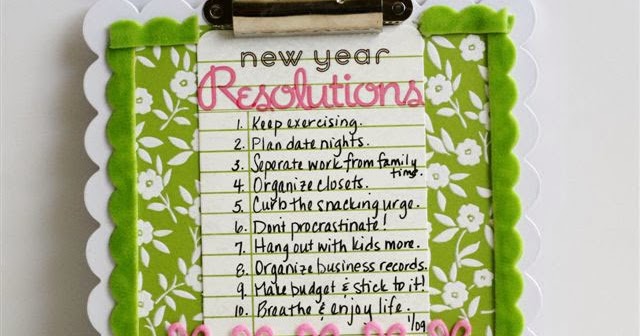 new year
Resolutions
1. Keep exercising.
2. Plan date nights.
3. Seperate work from family
time.
4. Organize closets.
5. Curb the snacking urge.
6. Dont procrastinate!
7. Hang out with kids more.
8. Organize business records.
9. Make budget & stick to it!
10. Breathe & enjoy life.
1/09